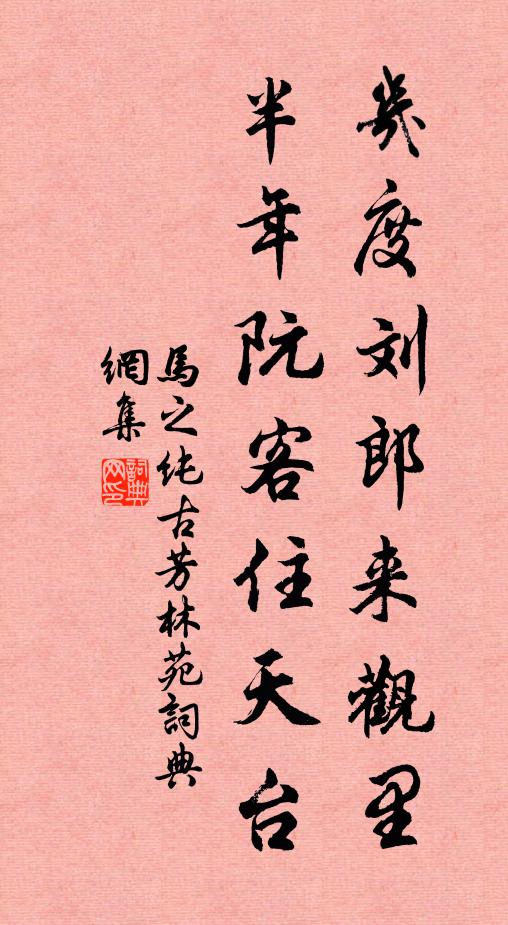 幾度刘郎来觀里
半年阮客住天台
馬之纯古芳林苑詞典
網集
詞典网印